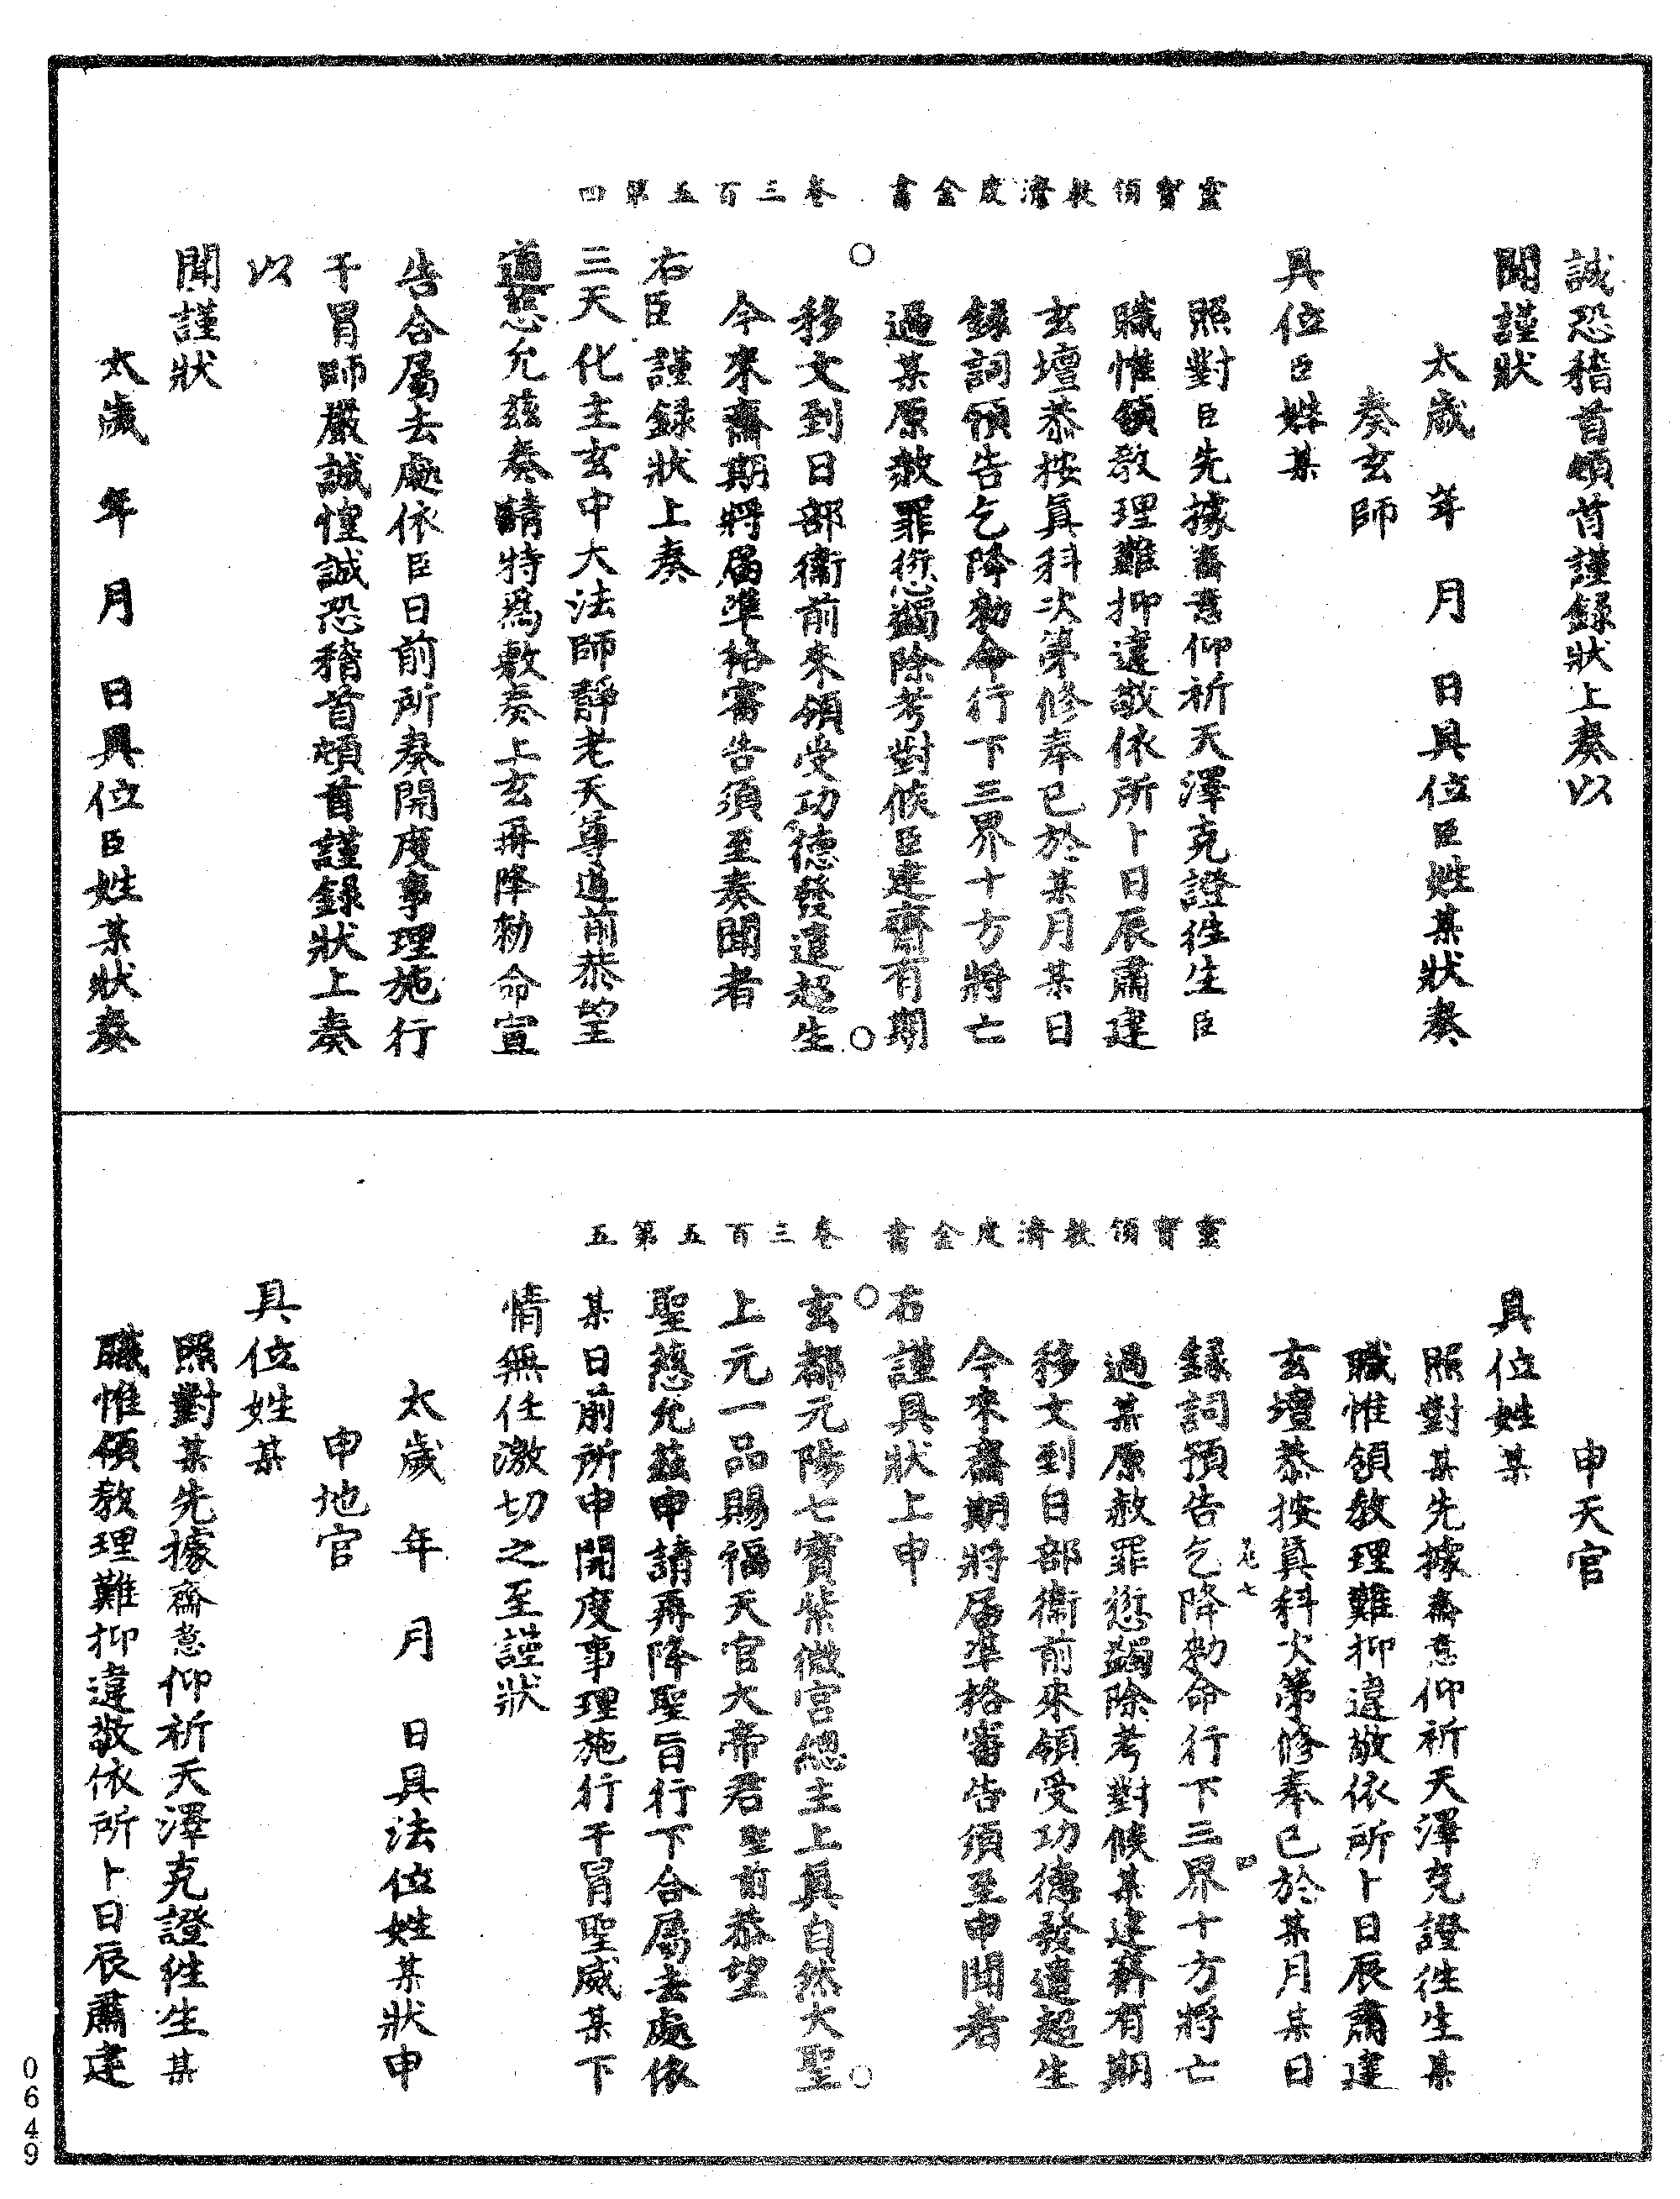 靈寶領教濟度金書　卷三百五第四
誠恐稽首頓首謹録狀上奏以
聞謹狀
太歲　年　月　日具位臣姓某狀奏
奏玄師
具位臣姓某
照對臣先據齋意仰祈天澤克證徃生臣
職惟領教理難抑違敬依所卜日辰肅建
玄壇恭按眞科次第修奉已於某月某日
録詞預告乞降勑命行下三界十方將亡
過某原赦罪愆蠲除考對候臣建齋有期
移文到日部衞前來領受功德發遣超生
今來齋期將届準格審告須至奏聞者
右臣謹録狀上奏
三天化主玄中大法師靜老天尊道前恭望
道慈允茲奏請特爲敷奏上玄再降勑命宣
告合屬去處依臣日前所奏開度事理施行
干冒師嚴誠惶誠恐稽首頓首謹録狀上奏
以
聞謹狀
太歲　年　月　日具位臣姓某狀奏
靈寶領教濟度金書　卷三百五第五
申天官
具位姓某
照對某先據齋意仰祈天澤克證徃生某
職惟領教理難抑違敬依所卜日辰肅建
玄壇恭按眞科次第修奉已於某月某日
録詞預告乞降勑命行下三界十方將亡
過某原赦罪愆蠲除考對候某建齋有期
移文到日部衞前來領受功德發遣超生
今來齋期將届準格審告須至申聞者
右謹具狀上申
玄都元陽七寶紫微宮總主上眞自然大聖
上元一品賜福天官大帝君聖前恭望
聖慈允茲申請再降聖旨行下合屬去處依
某日前所申開度事理施行干冒聖威某下
情無任激切之至謹狀
太歲　年　月　日具法位姓某狀申
申地官
具位姓某
照對某先據齋意仰祈天澤克證徃生某
職惟領教理難抑違敬依所卜日辰肅建
0649